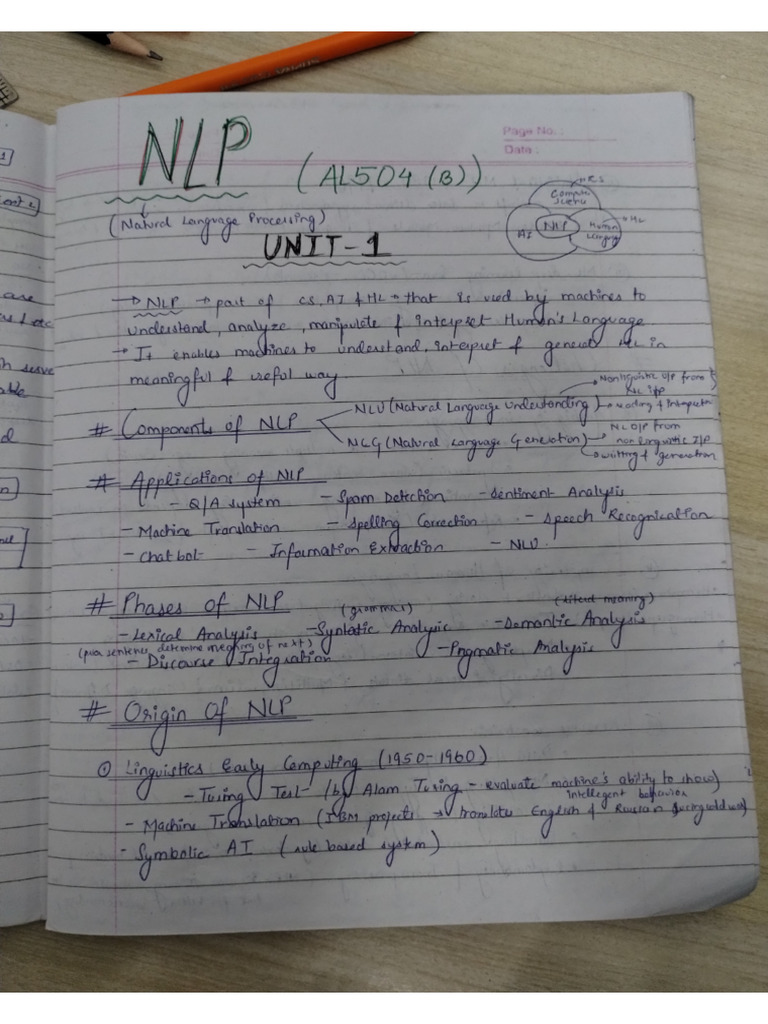 Page No. :
Date :
NLP
(AL504 (B))
(Natural Language Processing)
UNIT-1
CS
Computer
science
AI
NLP
Human
Language
HL
→ NLP → part of CS, AI & HL → that is used by machines to
understand, analyze, manipulate & interpret Human's Language
→ It enables machines to understand, interpret & generate HL in
meaningful & useful way
# Components of NLP
NLU (Natural Language Understanding)
Nonlinguistic O/P from
NL I/P
reading & interpretn
NLG (Natural Language Generation)
NL O/P from
non linguistic I/P
writting & generation
# Applications of NLP
- Q/A system - Spam Detection - Sentiment Analysis
- Machine Translation - Spelling Correction - Speech Recognization
- Chatbot - Information Extraction - NLU
# Phases of NLP
(grammar) meaning)
- Lexical Analysis - Syntatic Analysis - Analysis
sentence determine meaning of next)
- Discourse Integration - Analysis
# Origin Of NLP
① Linguistics Early Computing (1950-1960)
- Turing Test - (by Alam Turing - evaluate machine's ability to show)
intellegent behavior
- Machine Translation (IBM projects → translate English & Russian during cold war)
- Symbolic AI (rule based system)